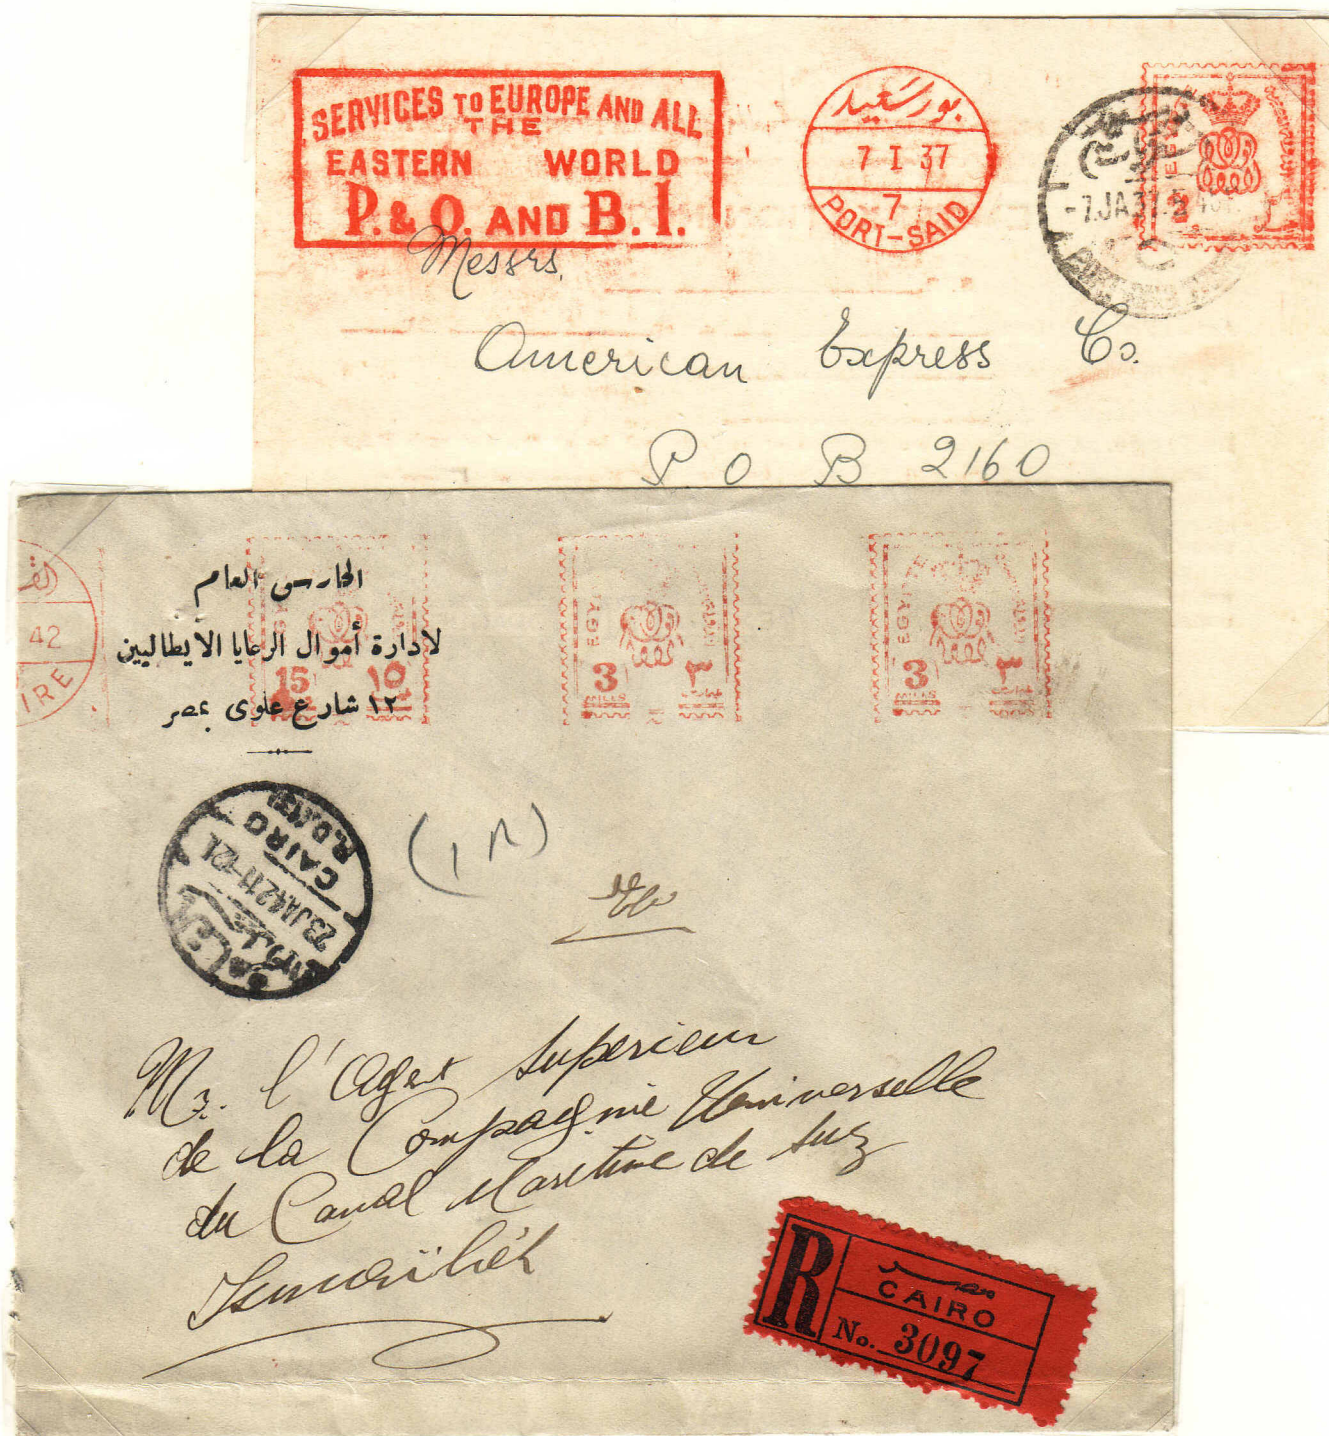 SERVICES TO EUROPE AND ALL
THE
EASTERN WORLD
P. & O. AND B. I.
بور سعيد
7 I 37
7
PORT-SAID
-7.JA37.
EGYPT
Messrs.
American Express Co.
P. O B 2160
42
IRE
الحارس العام
لادارة أموال الرعايا الايطاليين
١٢ شارع علوى بمصر
15 ١٥
EGYPT
3 ٣
MILLS
EGYPT
3 ٣
MILLS
CAIRO
23.JA.42.11-12
القاهرة
Mr. l'Agent Supérieur
de la Compagnie Universelle
du Canal Maritime de Suez
Ismaïliah
R
مصر
CAIRO
No. 3097